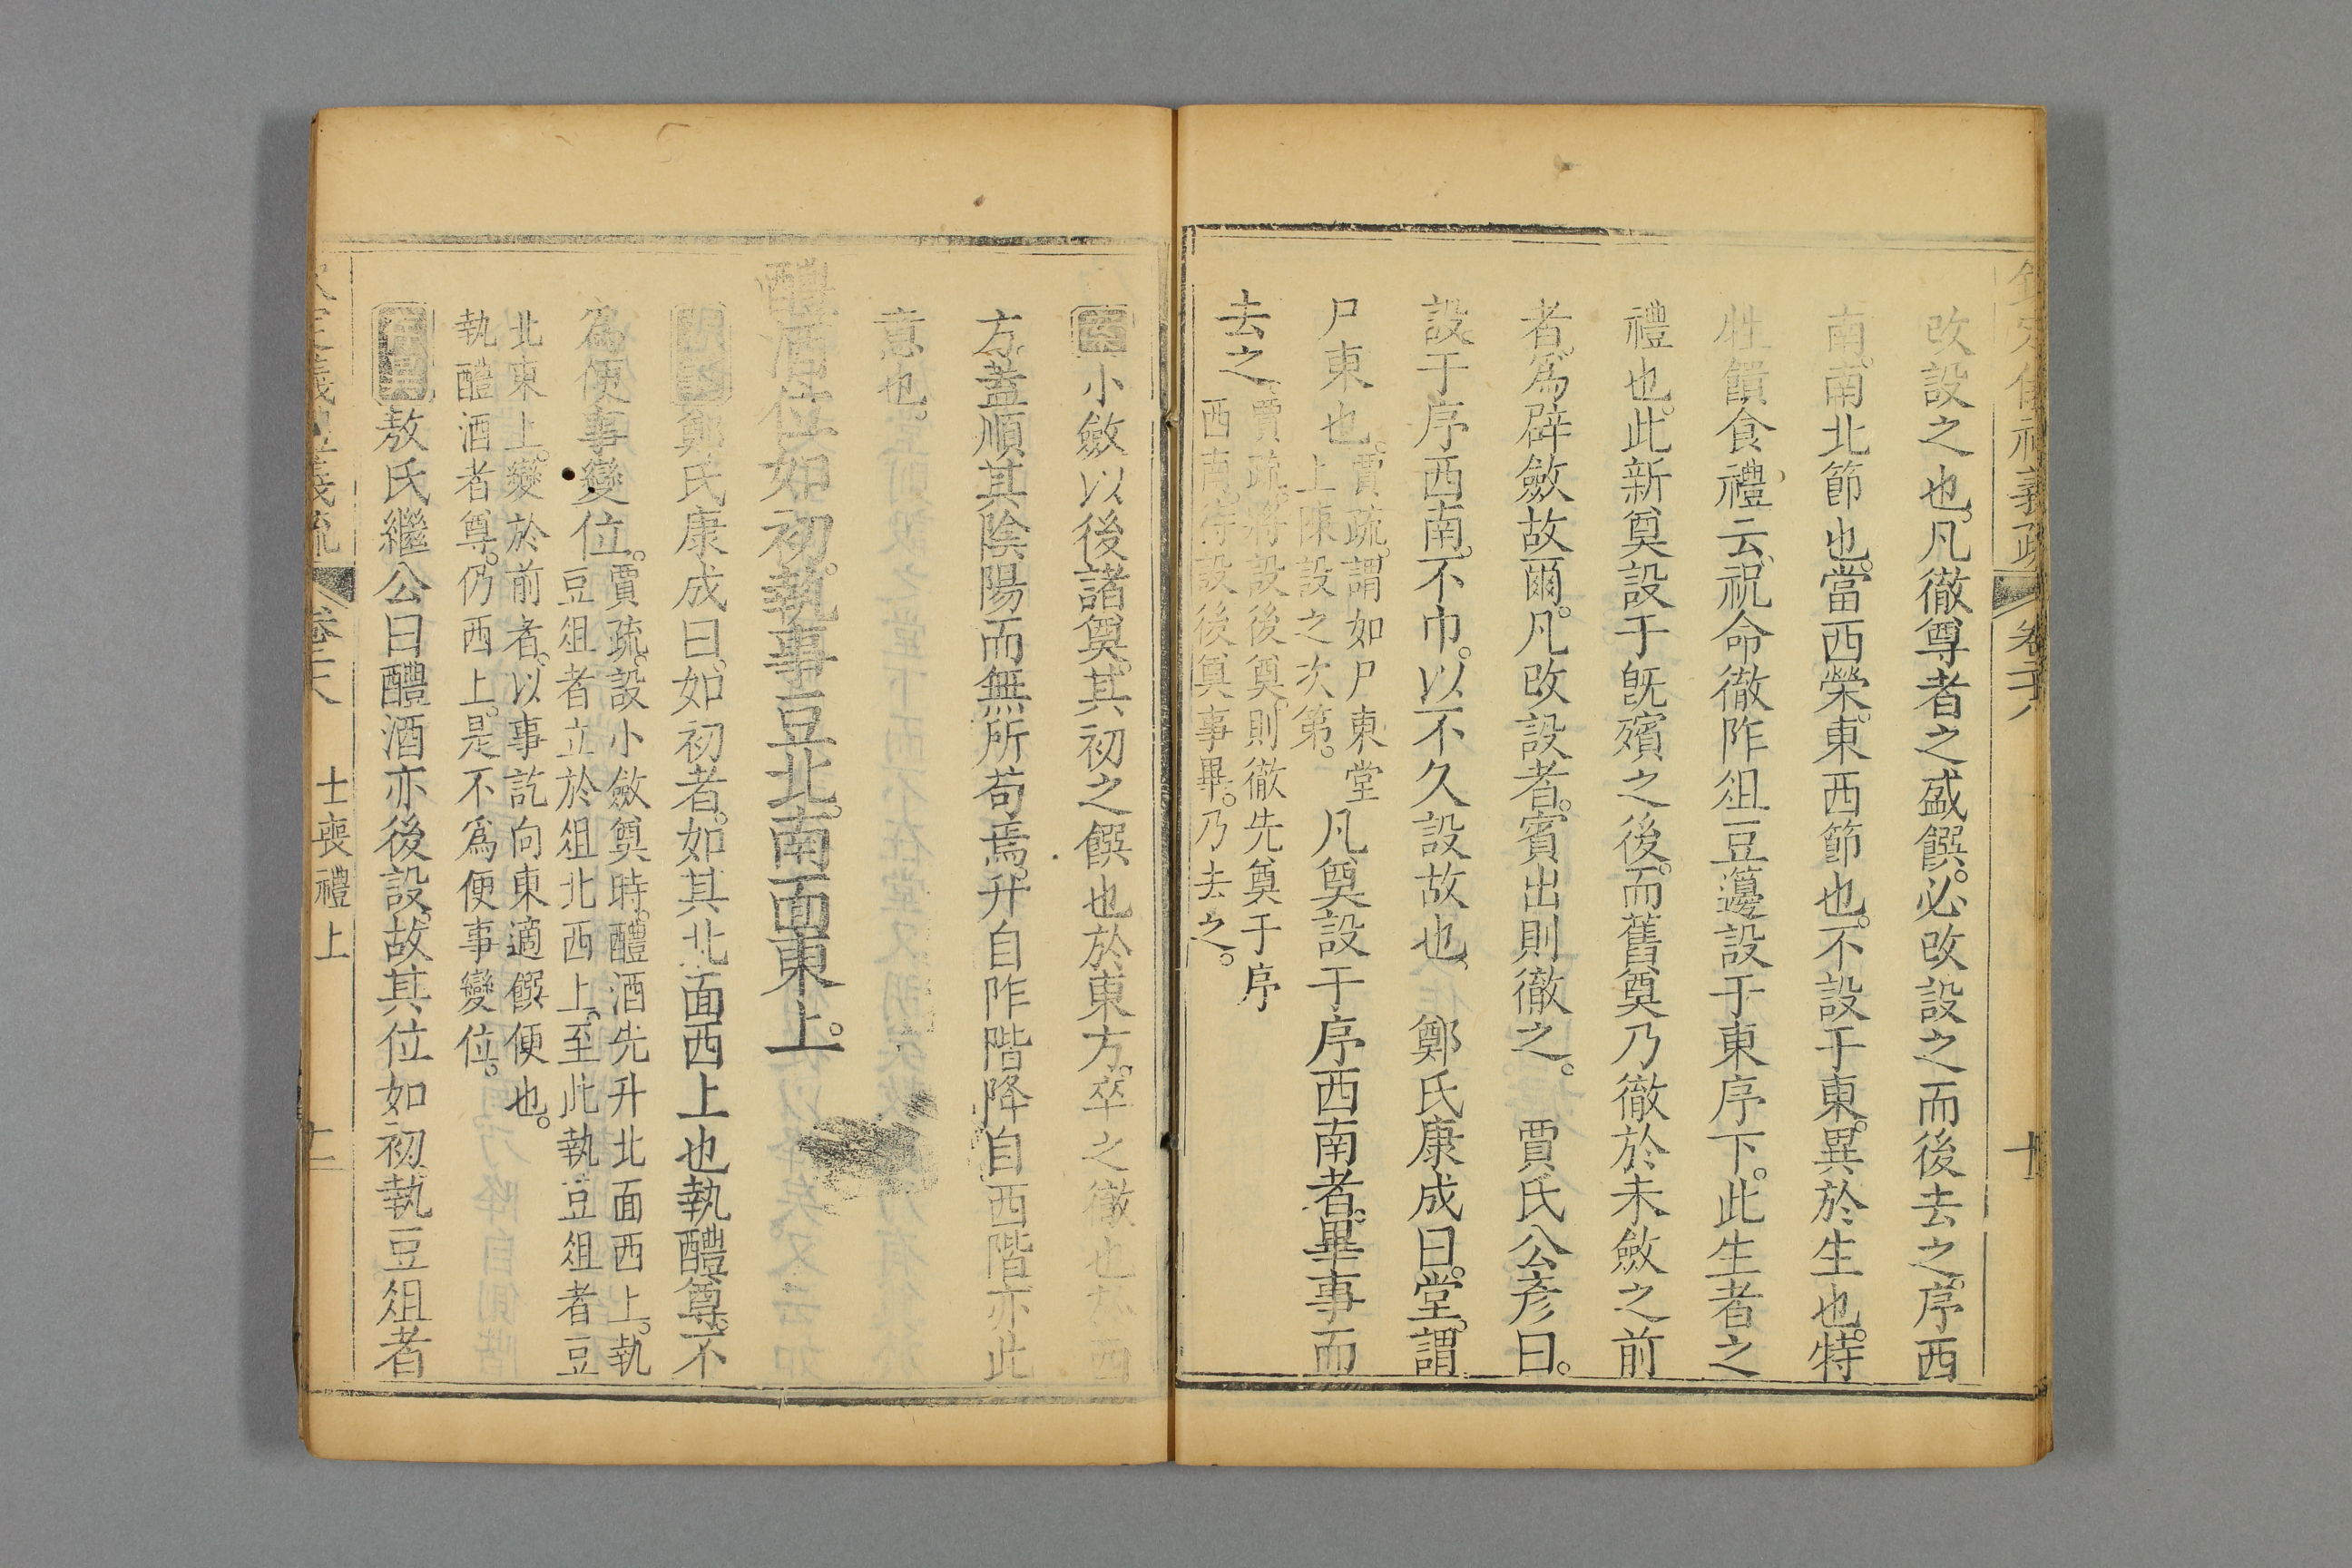 欽定儀禮義疏 卷二十八 十
改設之也。凡徹尊者之盛饌。必改設之而後去之。序西
南。南北節也。當西榮。東西節也。不設于東。異於生也。特
牲饋食禮云、祝命徹阼俎豆籩設于東序下。此生者之
禮也。此新奠設于旣殯之後。而舊奠乃徹於未斂之前
者。爲辟斂故爾。凡改設者。賓出則徹之。 賈氏公彥曰。
設于序西南。不巾。以不久設故也。 鄭氏康成曰。堂。謂
尸東也。
賈疏。謂如尸東堂
上陳設之次第。
凡奠設于序西南者。畢事而
去之。
賈疏。將設後奠。則徹先奠于序
西南。待設後奠事畢。乃去之。
小斂以後諸奠。其初之饌也於東方。卒之徹也於西
方。蓋順其陰陽而無所苟焉。升自阼階降自西階亦此
意也。
醴酒位如初。執事豆北。南面東上。
鄭氏康成曰。如初者。如其北面西上也執醴尊。不
為便事變位。
賈疏。設小斂奠時。醴酒先升北面西上。執
豆俎者立於俎北西上。至此執豆俎者豆
北東上。變於前者。以事訖向東適饌便也。
執醴酒者尊。仍西上。是不爲便事變位。
敖氏繼公曰醴酒亦後設。故其位如初執豆俎者
義疏 卷二十八 士喪禮上